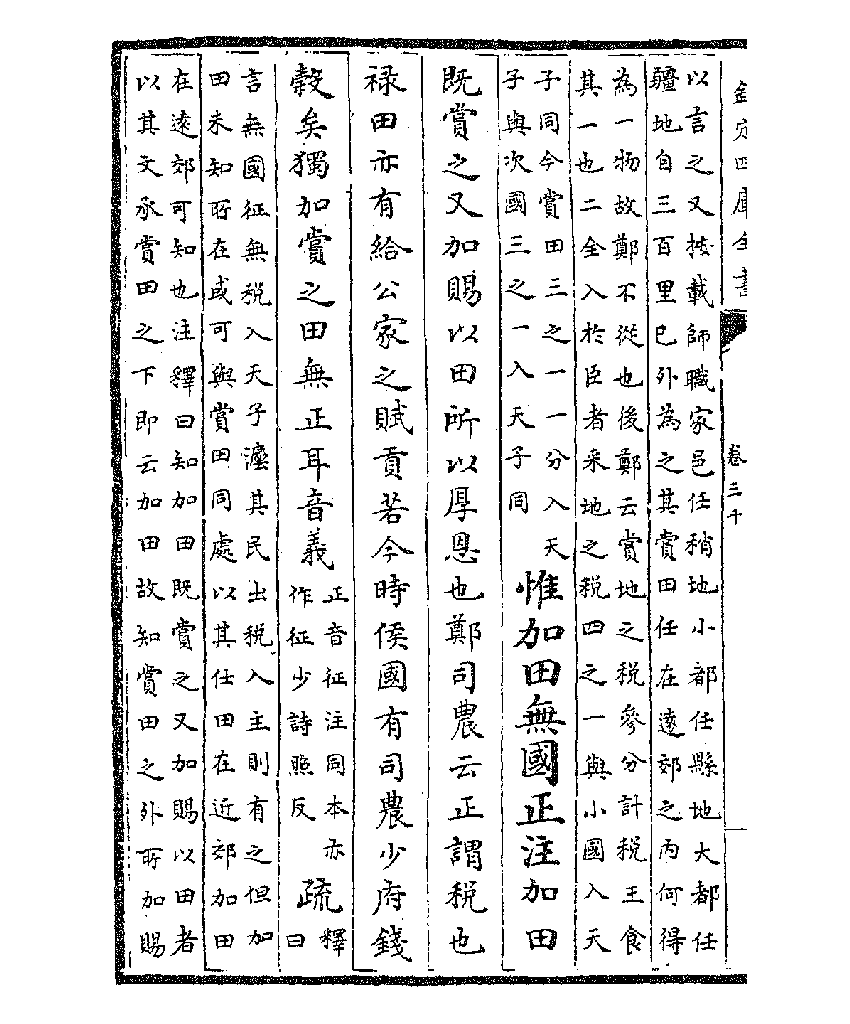 欽定四庫全書
卷三十
以言之又按載師職家邑任稍地小都任縣地大都任
疆地自三百里已外為之其賞田任在遠郊之内何得
為一物故鄭不從也後鄭云賞地之税參分計税王食
其一也二全入於臣者采地之税四之一與小國入天
子同今賞田三之一一分入天
子與次國三之一入天子同
惟加田無國正注加田
既賞之又加賜以田所以厚恩也鄭司農云正謂税也
禄田亦有給公家之賦貢若今時侯國有司農少府錢
穀矣獨加賞之田無正耳音義
正音征注同本亦
作征少詩照反
疏
釋
曰
言無國征無税入天子灋其民出税入主則有之但加
田未知所在或可與賞田同處以其仕田在近郊加田
在遠郊可知也注釋曰知加田既賞之又加賜以田者
以其文承賞田之下即云加田故知賞田之外所加賜